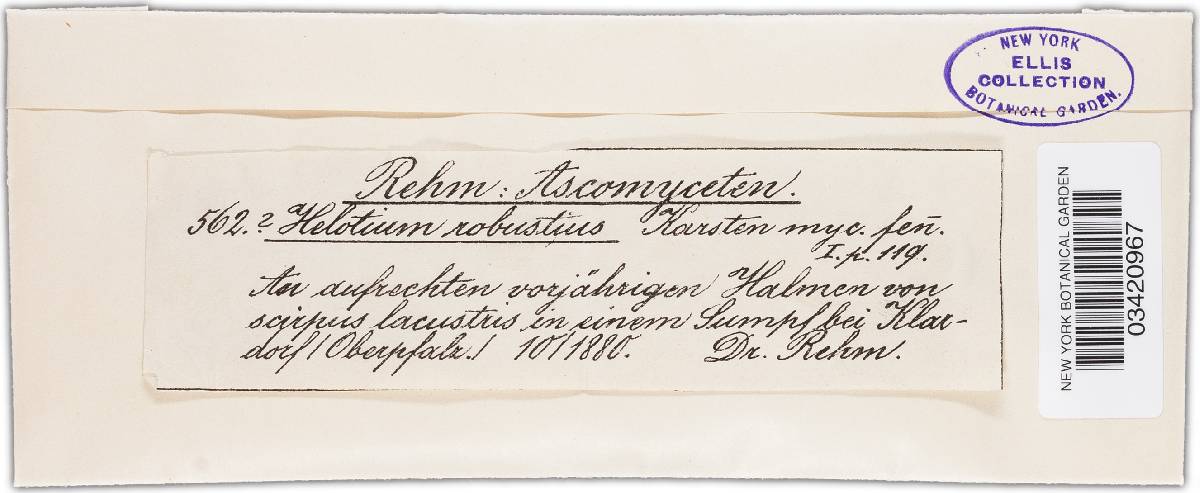 NEW YORK
ELLIS
COLLECTION
BOTANICAL GARDEN.
Rehm: Ascomyceten.
562. ? Helotium robustius Karsten myc. fen̄.
I. p. 119.
An aufrechten vorjährigen Halmen von
scirpus lacustris in einem Sumpf bei Klar-
dorf/Oberpfalz./ 10/1880. Dr. Rehm.
NEW YORK BOTANICAL GARDEN
03420967